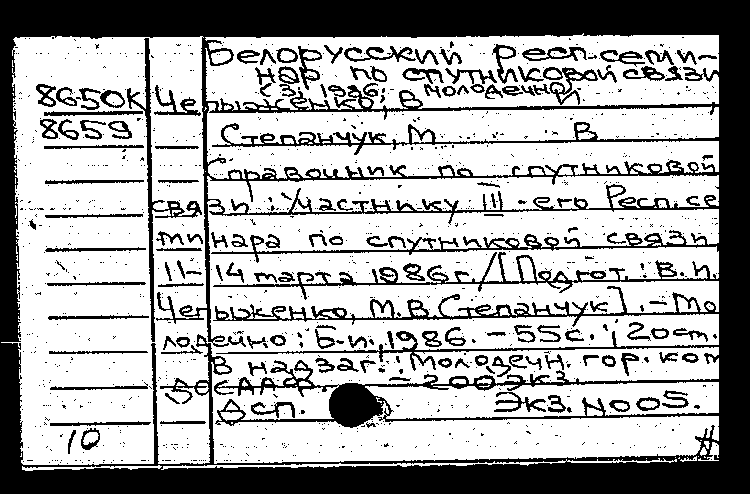 Белорусский респ. семи-
нар по спутниковой связи
(3; 1986; Молодечно)
8650К Челыженко, В И
8659 Степанчук, М В
Справочник по спутниковой
связи: Участнику III-его Респ. се
минара по спутниковой связи,
11-14 марта 1986 г. / [Подгот.: В.И.
Челыженко, М.В. Степанчук]. - Мо
лодечно: Б.и., 1986. - 55 с.; 20 см.
В надзаг.: Молодечн. гор. ком
ДОСААФ. - 200 экз.
ДСП. Экз. N005.
10 #